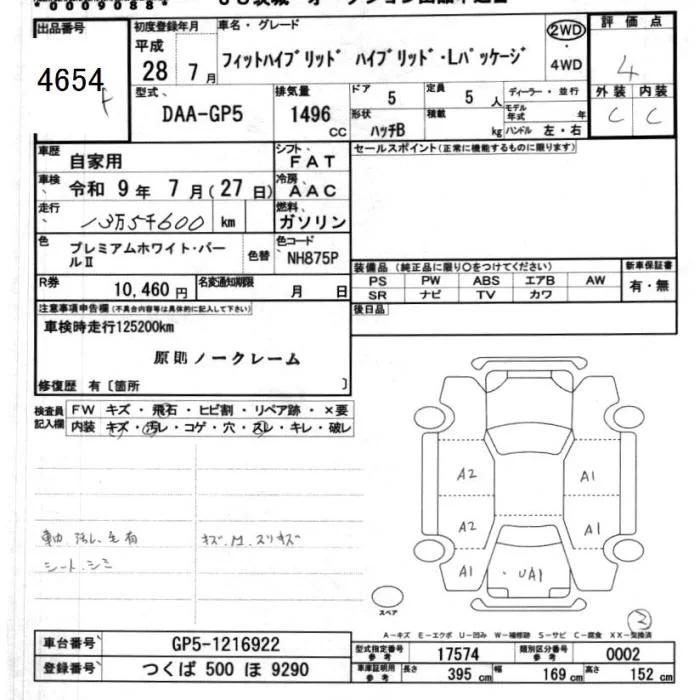 *0009088*
出品番号 初度登録年月 車名・グレード 2WD 評価点
4654 平成 28 7 月 フィットハイブリッド ハイブリッド・Lパッケージ ・ 4WD 4
型式、 排気量 ドア 定員 ディーラー・並行 外装 内装
DAA-GP5 1496 CC 5 5 人 モデル年式 年 C C
形状 ハッチB 積載 kg ハンドル 左・右
車歴 自家用 シフト、 FAT セールスポイント(正常に機能するものに限ります)
車検、 令和 9 年 7 月(27 日) 冷房、 AAC
走行、 13万5千600 km 燃料、 ガソリン
色 プレミアムホワイト・パールⅡ 色替 色コード NH875P
装備品 (純正品に限り〇をつけてください) 新車保証書
PS PW ABS エアB AW 有・無
SR ナビ TV カワ
R券 10,460 円 名変通知期限 月 日
後日品
注意事項申告欄(不具合内容等は具体的に記入して下さい)
車検時走行125200km
原則ノークレーム
修復歴 有〔箇所 〕
検査員記入欄 FW キズ・飛石・ヒビ割・リペア跡・×要
内装 キズ・汚レ・コゲ・穴・スレ・キレ・破レ
A2 A1
A2 A1
A1 ・UA1
シート.シミ
スペア
3
A-キズ E-エクボ U-凹み W-補修跡 S-サビ C-腐食 XX-交換済
車台番号 GP5-1216922 型式指定番号 参考 17574 類別区分番号 参考 0002
登録番号 つくば 500 ほ 9290 車庫証明用 参考 長さ 395 cm 幅 169 cm 高さ 152 cm